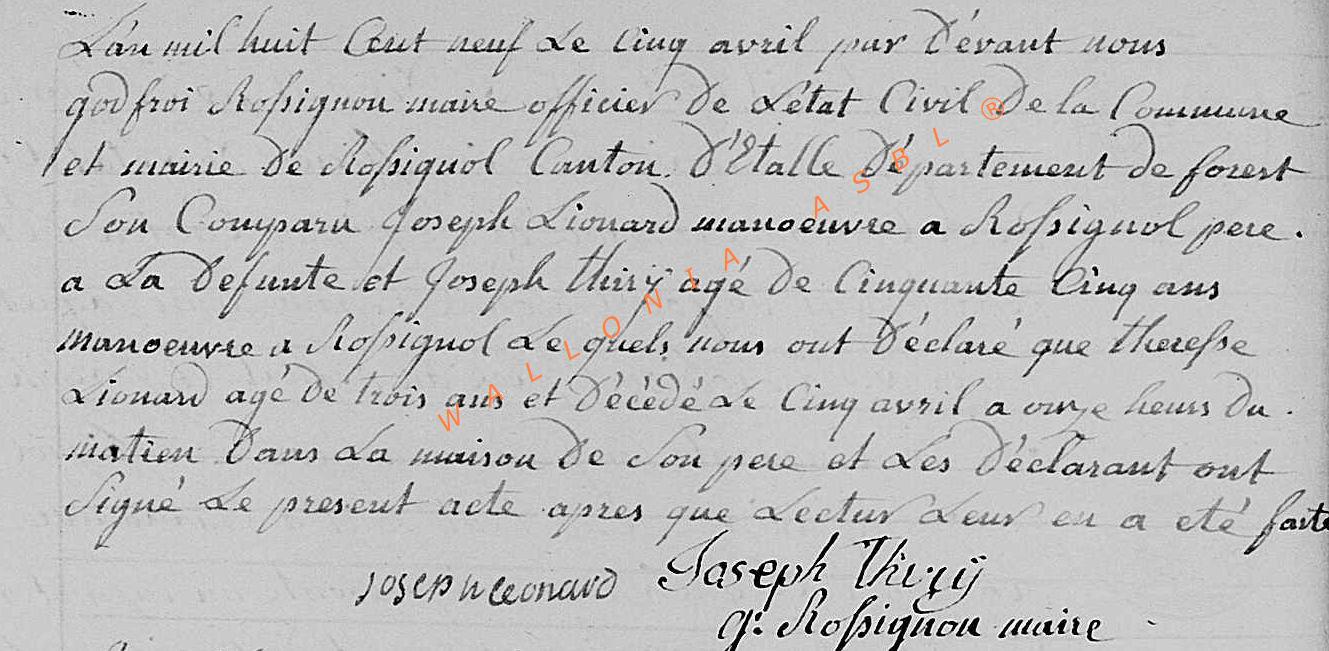 L'an mil huit Cent neuf Le Cinq avril par D'évant nous
godfroi Rossignon maire officier De L'état Civil De la Commune
et mairie De Rossignol Canton D'Etalle Département de forest
Son Comparu Joseph Lionard manoeuvre a Rossignol pere.
a La Defunte et Joseph thiry agé De Cinquante Cinq ans
manoeuvre a Rossignol Le quels nous ont Déclaré que theresse
Lionard agé De trois ans et Décédé Le Cinq avril a onze heurs Du.
matien Dans La maison De Son pere et Les Déclarant ont
Signé Le present acte apres que Lectur Leur en a eté faite
Joseph Leonard Jaseph Thiry
g: Rossignon maire
WALLONIA ASBL ®